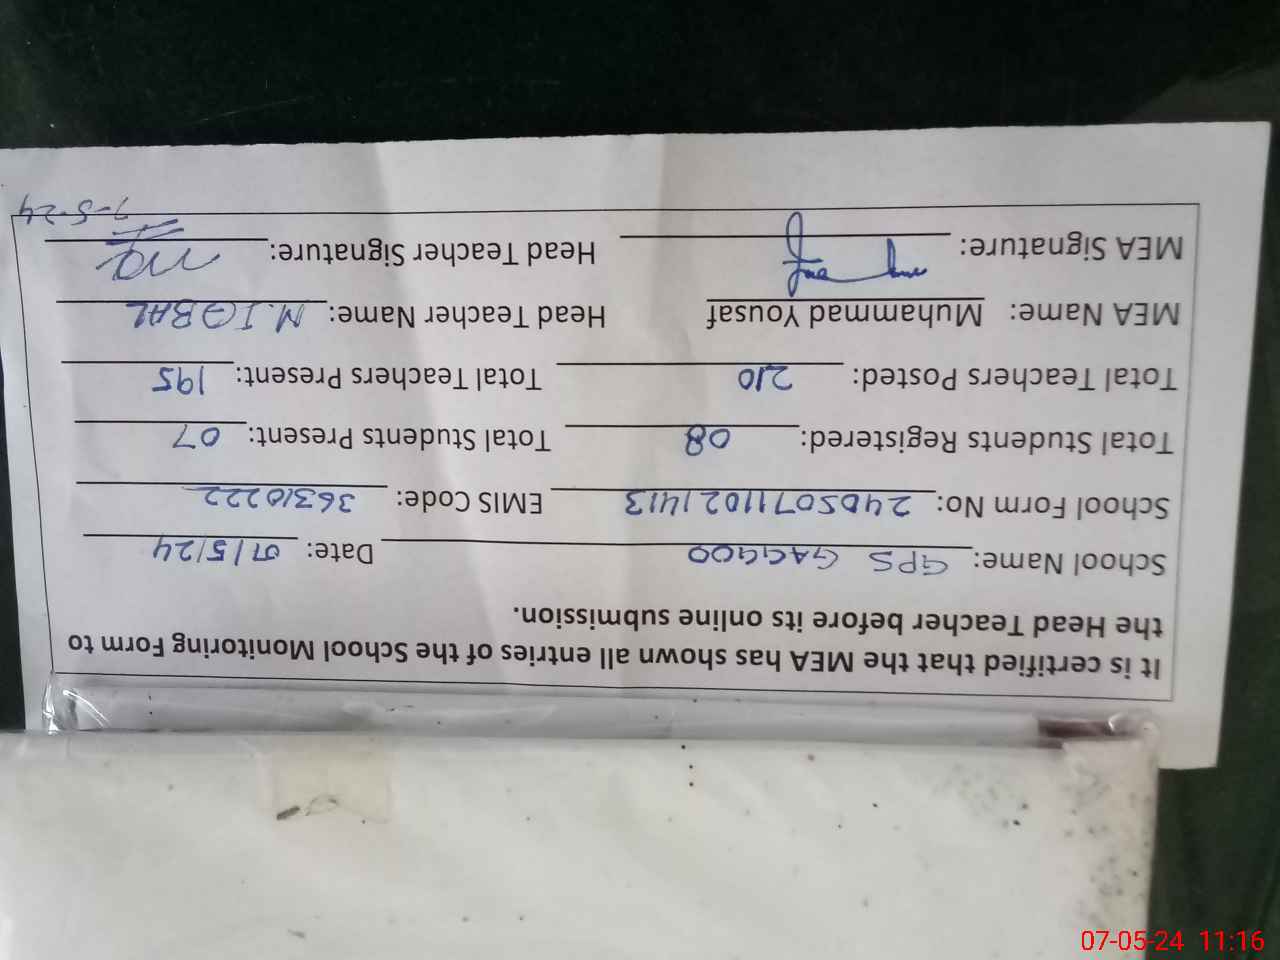 It is certified that the MEA has shown all entries of the School Monitoring Form to
the Head Teacher before its online submission.
School Name: GPS GAGGOO Date: 07/5/24
School Form No: 24050711021413 EMIS Code: 36310222
Total Students Registered: 08 Total Students Present: 07
Total Teachers Posted: 210 Total Teachers Present: 195
MEA Name: Muhammad Yousaf Head Teacher Name: M.IQBAL
MEA Signature: Head Teacher Signature:
7-5-24
07-05-24 11:16